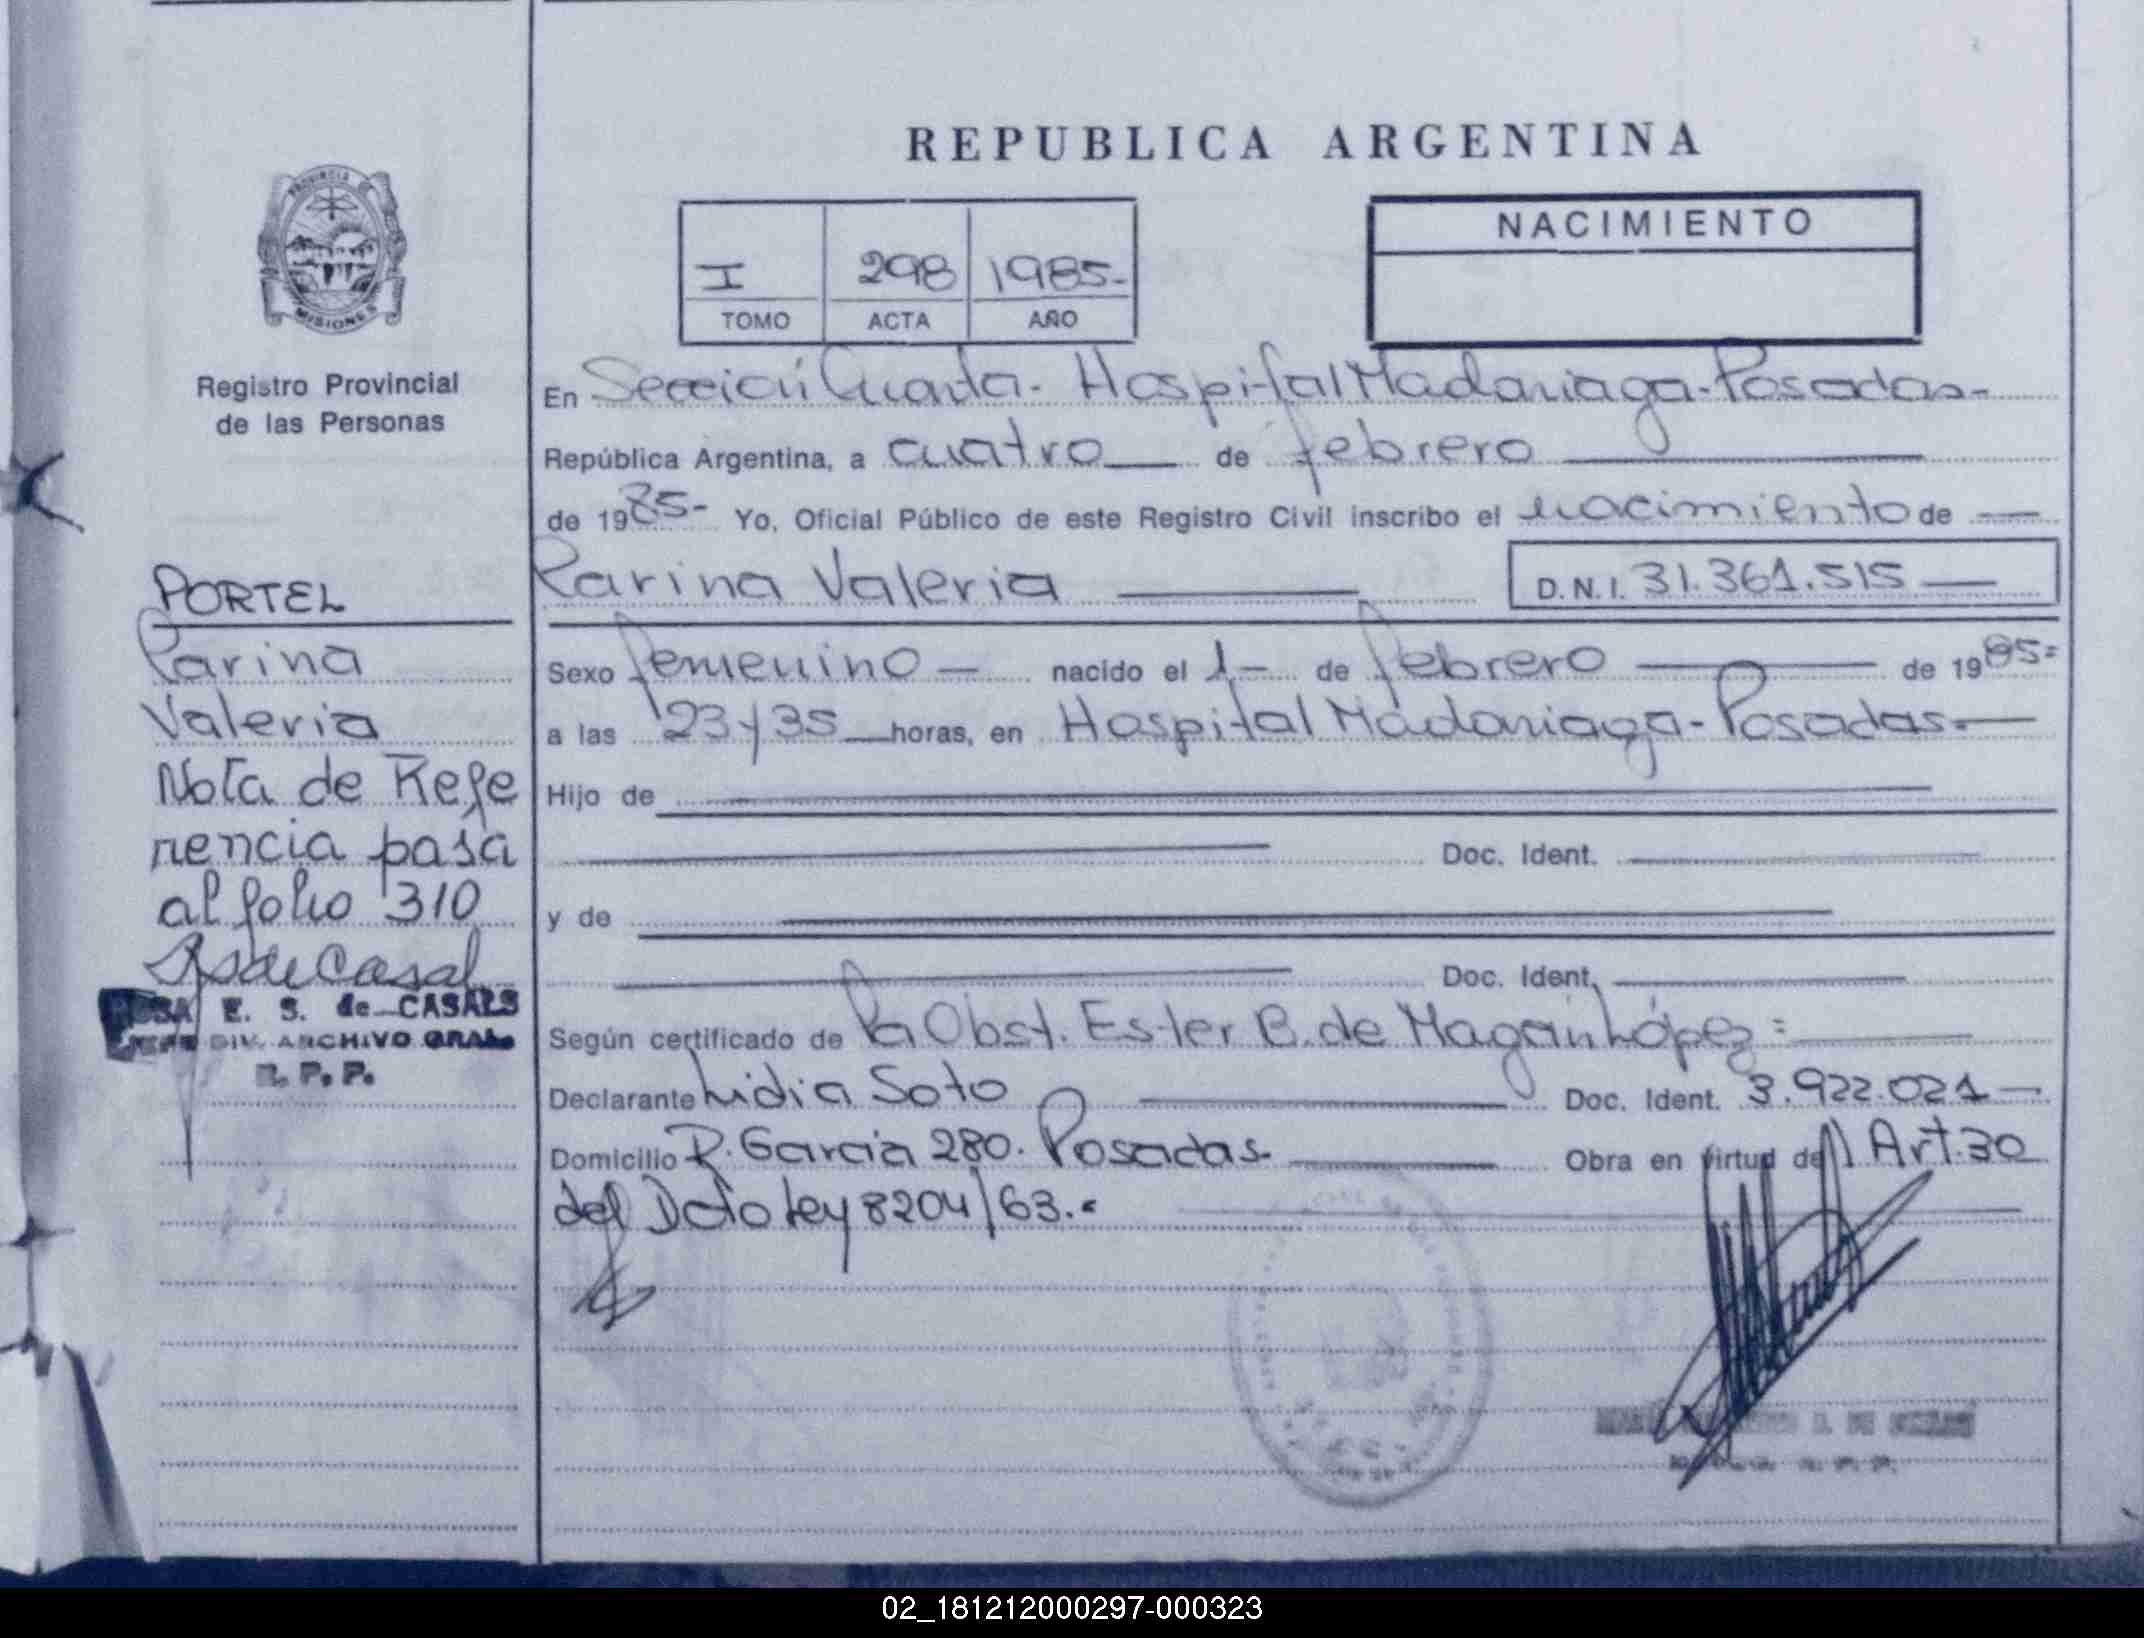 REPUBLICA ARGENTINA
NACIMIENTO
I 298 1985-
TOMO ACTA AÑO
PROVINCIA DE
MISIONES
Registro Provincial
de las Personas
En Sección Cuarta- Hospital Madariaga-Posadas-
República Argentina, a cuatro de febrero
de 1985- Yo, Oficial Público de este Registro Civil inscribo el nacimiento de
Parina Valeria D.N.I. 31.361.515
Sexo femenino - nacido el 1- de febrero de 1985=
a las 23 y 35 horas, en Hospital Madariaga-Posadas.
Hijo de
Doc. Ident.
y de
Doc. Ident.
Según certificado de la Obst. Ester B. de Magan López =
Declarante Lidia Soto Doc. Ident. 3.922.021
Domicilio R. Garcia 280. Posadas Obra en virtud del Art. 30
del Dcto Ley 8204/63.-
PORTEL
Parina
Valeria
Nota de Refe
rencia pasa
al folio 310
E. S. de CASALS
DIV. ARCHIVO GRAL.
R. P. P.
02_181212000297-000323